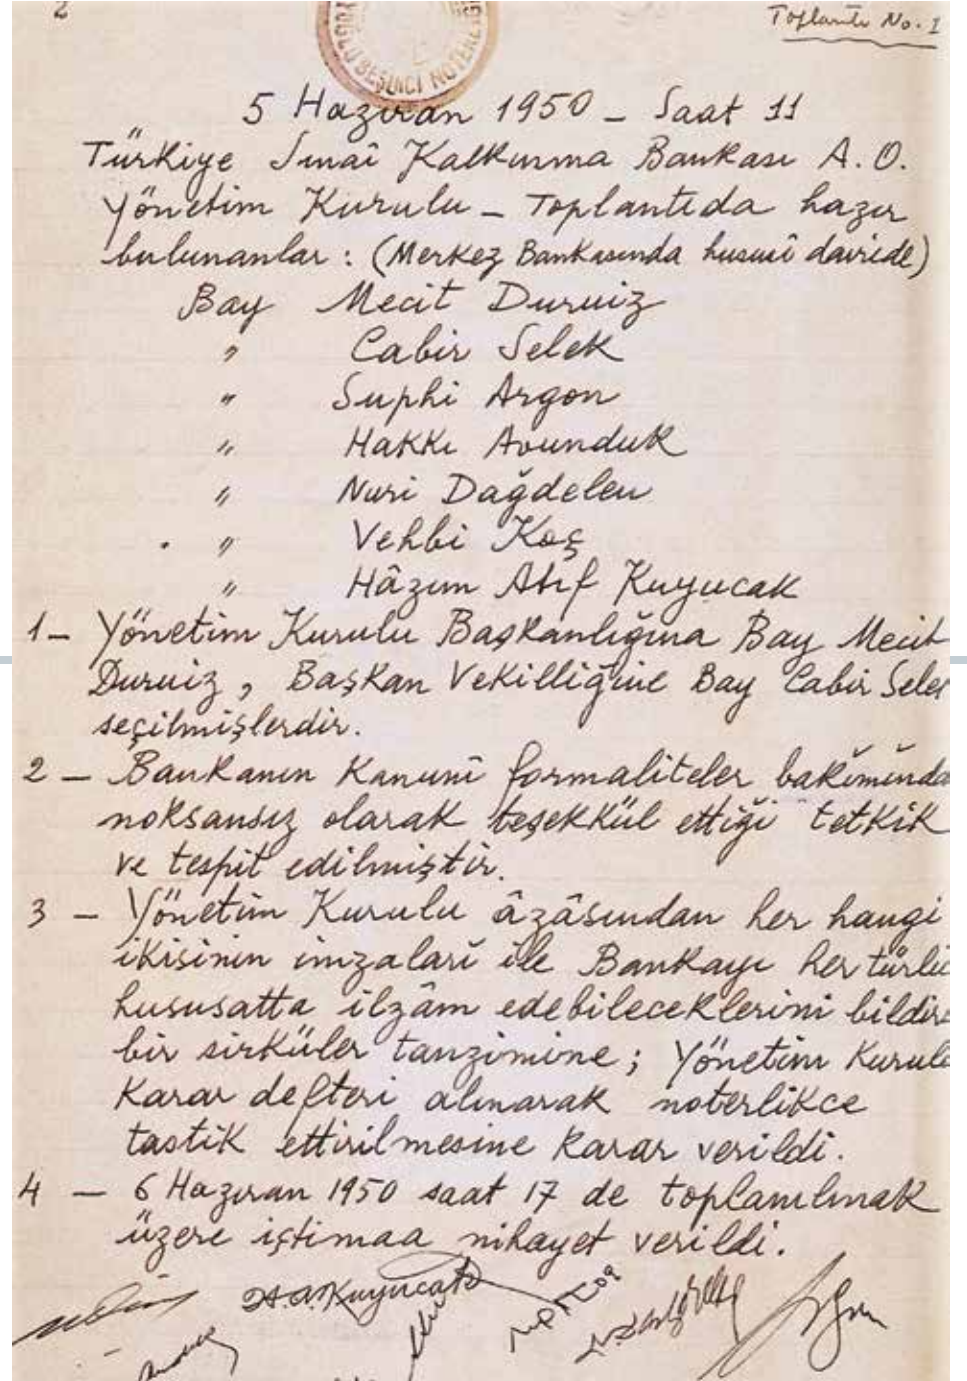 2
Toplantı No. 1
YOĞLU BEŞİNCİ NOTERLİĞİ
5 Haziran 1950 - Saat 11
Türkiye Sınaî Kalkınma Bankası A. O.
Yönetim Kurulu - Toplantıda hazır
bulunanlar : (Merkez Bankasında hususî dairede)
Bay Mecit Duruiz
" Cabir Selek
" Suphi Argon
" Hakkı Avunduk
" Nuri Dağdelen
" Vehbi Koç
" Hâzım Atıf Kuyucak
1- Yönetim Kurulu Başkanlığına Bay Mecit
Duruiz, Başkan Vekilliğine Bay Cabir Sele
seçilmişlerdir.
2 - Bankanın Kanunî formaliteler bakımında
noksansız olarak teşekkül ettiği tetkik
ve tespit edilmiştir.
3 - Yönetim Kurulu âzâsından her hangi
ikisinin imzaları ile Bankayı her türlü
hususatta ilzâm edebileceklerini bildire
bir sirküler tanzimine; Yönetim Kurulu
Karar defteri alınarak noterlikce
tastik ettirilmesine karar verildi.
4 - 6 Haziran 1950 saat 17 de toplanılmak
üzere içtimaa nihayet verildi.
H.A.Kuyucak